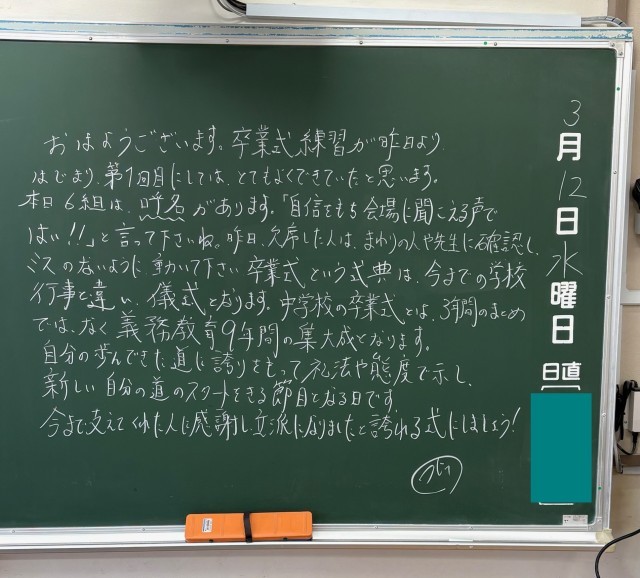 おはようございます。卒業式練習が昨日より
はじまり、第1回目にしては、とてもよくできていたと思います。
本日6組は、呼名があります。「自信をもち会場に聞こえる声で
はい!!」と言って下さいね。昨日、欠席した人は、まわりの人や先生に確認し、
ミスのないように動いて下さい。卒業式という式典は、今までの学校
行事と違い、儀式となります。中学校の卒業式とは、3年間のまとめ
では、なく義務教育9年間の集大成となります。
自分の歩んできた道に誇りをもって礼法や態度で示し、
新しい自分の道のスタートをきる節目となる日です。
今まで支えてくれた人に感謝し立派になりましたと誇れる式にしましょう!
3月12日水曜日
日直